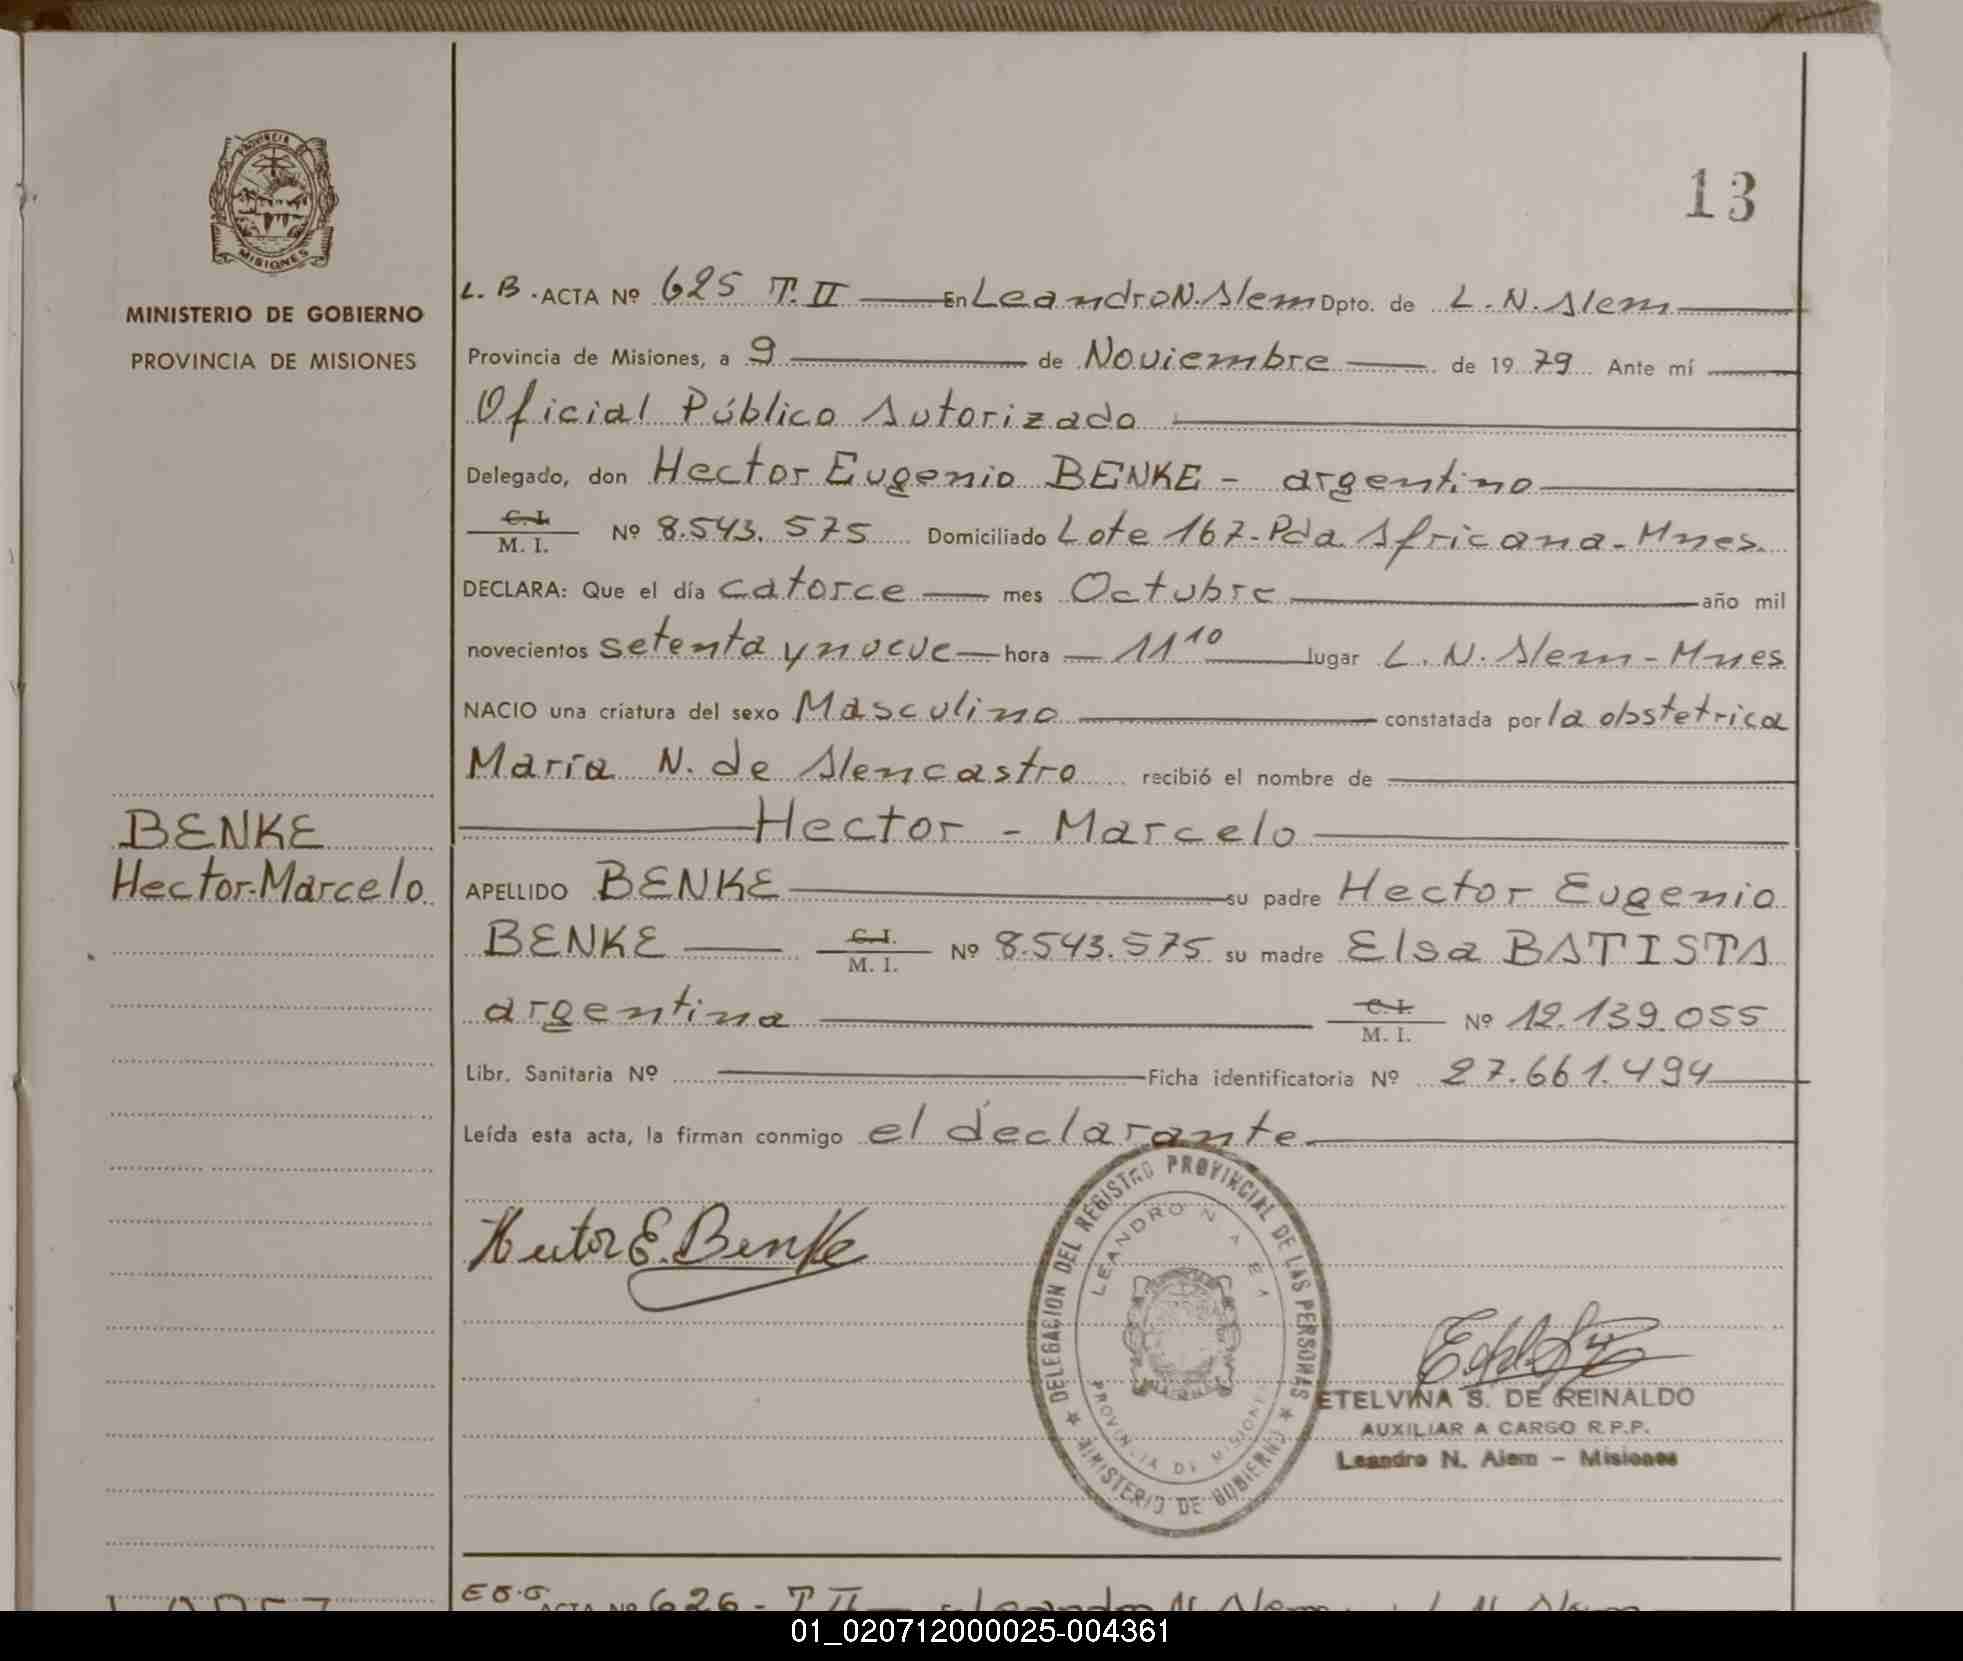 PROVINCIA DE
MISIONES
MINISTERIO DE GOBIERNO
PROVINCIA DE MISIONES
13
L. B. ACTA Nº 625 T. II En Leandro N. Alem Dpto. de L. N. Alem
Provincia de Misiones, a 9 de Noviembre de 19 79 Ante mí
Oficial Público Autorizado
Delegado, don Hector Eugenio BENKE - argentino
C. I.
M. I. Nº 8.543.575 Domiciliado Lote 167-Pda. Africana-Mnes.
DECLARA: Que el día catorce mes Octubre año mil
novecientos setenta y nueve hora 11 10 lugar L. N. Alem-Mnes
NACIO una criatura del sexo Masculino constatada por la obstetrica
María N. de Alencastro recibió el nombre de
Hector - Marcelo
BENKE
Hector-Marcelo
APELLIDO BENKE su padre Hector Eugenio
BENKE C. I. M. I. Nº 8.543.575 su madre Elsa BATISTA
argentina C. I. M. I. Nº 12.139.055
Libr. Sanitaria Nº Ficha identificatoria Nº 27.661.494
Leída esta acta, la firman conmigo el declarante
Hector E. Benke
DELEGACION DEL REGISTRO PROVINCIAL DE LAS PERSONAS
LEANDRO N
PROVINCIA DE MISIONES
MINISTERIO DE GOBIERNO
ETELVINA S. DE REINALDO
AUXILIAR A CARGO R.P.P.
Leandro N. Alem - Misiones
ACTA Nº 626 - T II Leandro N. Alem L. N. Alem
01_020712000025-004361